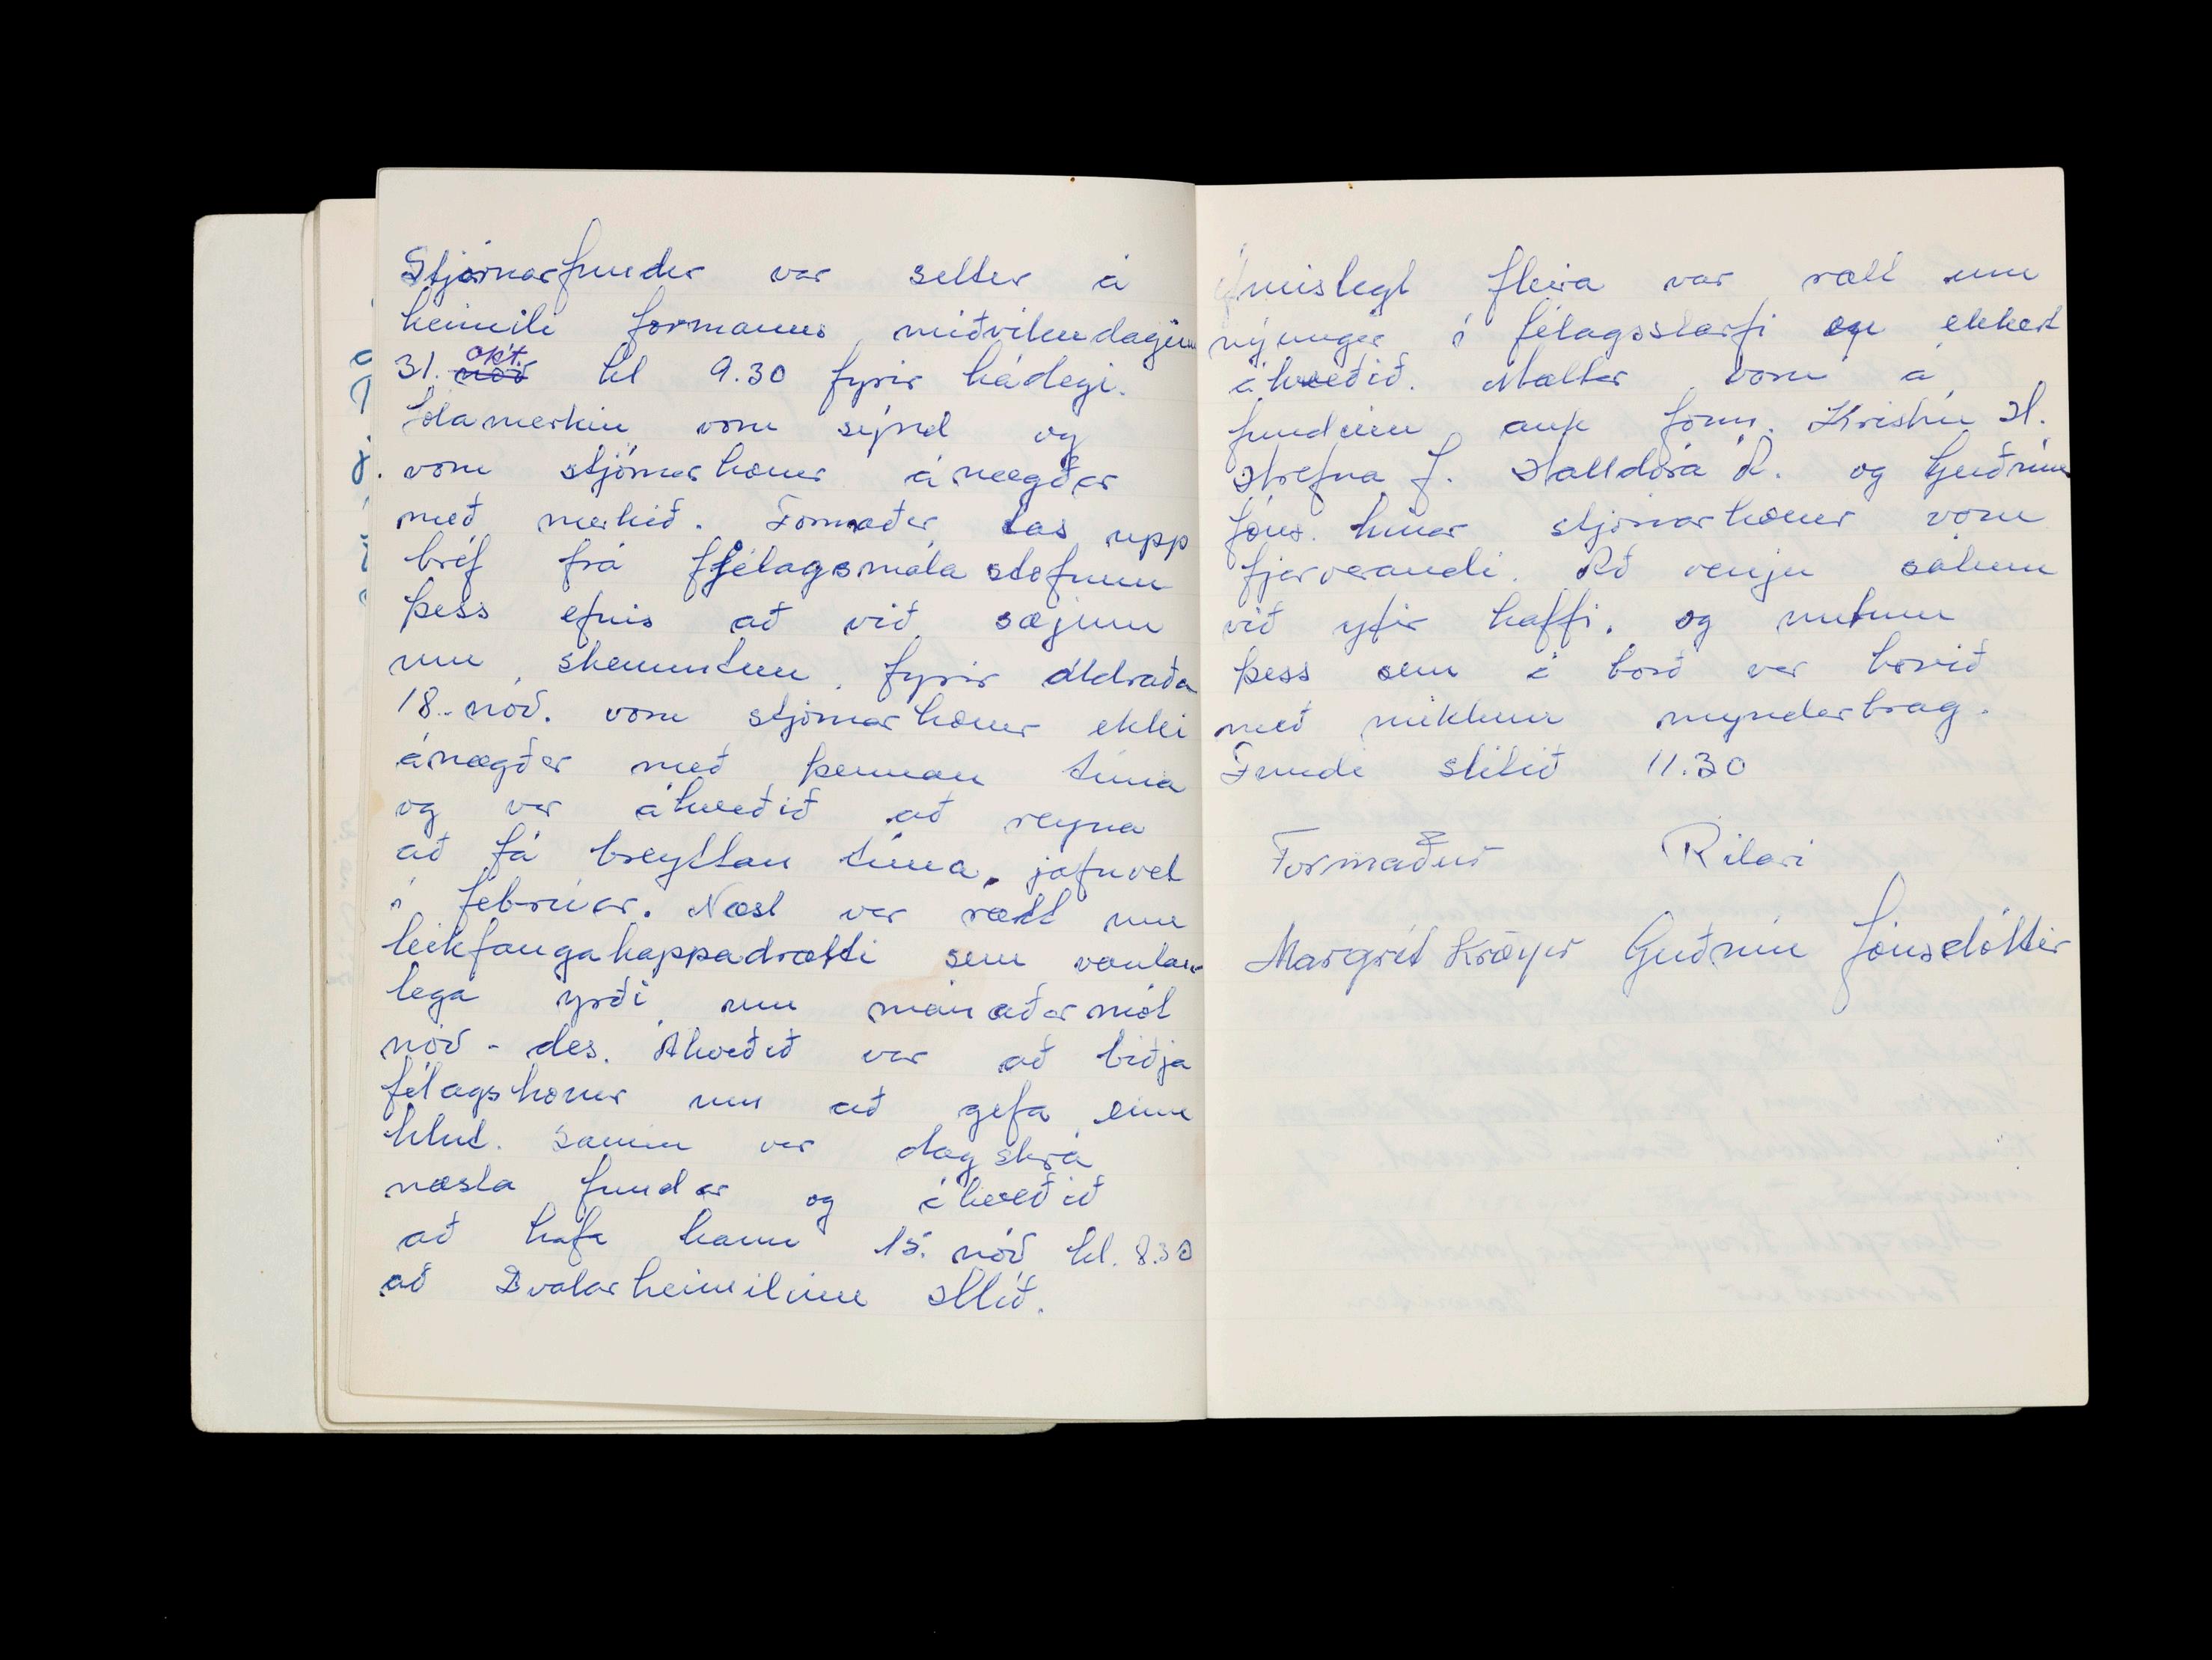 Stjórnarfundur var settur á
heimili formanns miðvikudaginn
31. okt. nóv kl 9.30 fyrir hádegi.
Jólamerkin voru sýnd og
voru stjórnarkonur ánægðar
með merkið. Formaður las upp
bréf frá félagsmálastofnun
þess efnis að við sæjum
um skemmtun fyrir aldraða
18. nóv. voru stjórnarkonur ekki
ánægðar með þennan tíma
og var ákveðið að reyna
að fá breyttan tíma, jafnvel
í febrúar. Næst var rætt um
leikfangahappadrætti sem væntan-
lega yrði um mánaðarmót
nóv - des. Ákveðið var að biðja
félagskonur um að gefa einn
hlut. Samin var dagskrá
næsta fundar og ákveðið
að hafa hann 15. nóv kl. 8.30
að Dvalarheimilinu Hlíð.
Ýmislegt fleira var rætt um
nýungar í félagsstarfi en ekkert
ákveðið. Mættar voru á
fundinn auk form. Kristín H.
Hrefna J. Halldóra Á. og Guðrún
Jóns. hinar stjórnarkonur voru
fjarverandi. Að venju sátum
við yfir kaffi, og nutum
þess sem á borð var borið
með miklum myndarbrag.
Fundi slitið 11.30
Formaður Ritari
Margrét Kröyer Guðrún Jónsdóttir